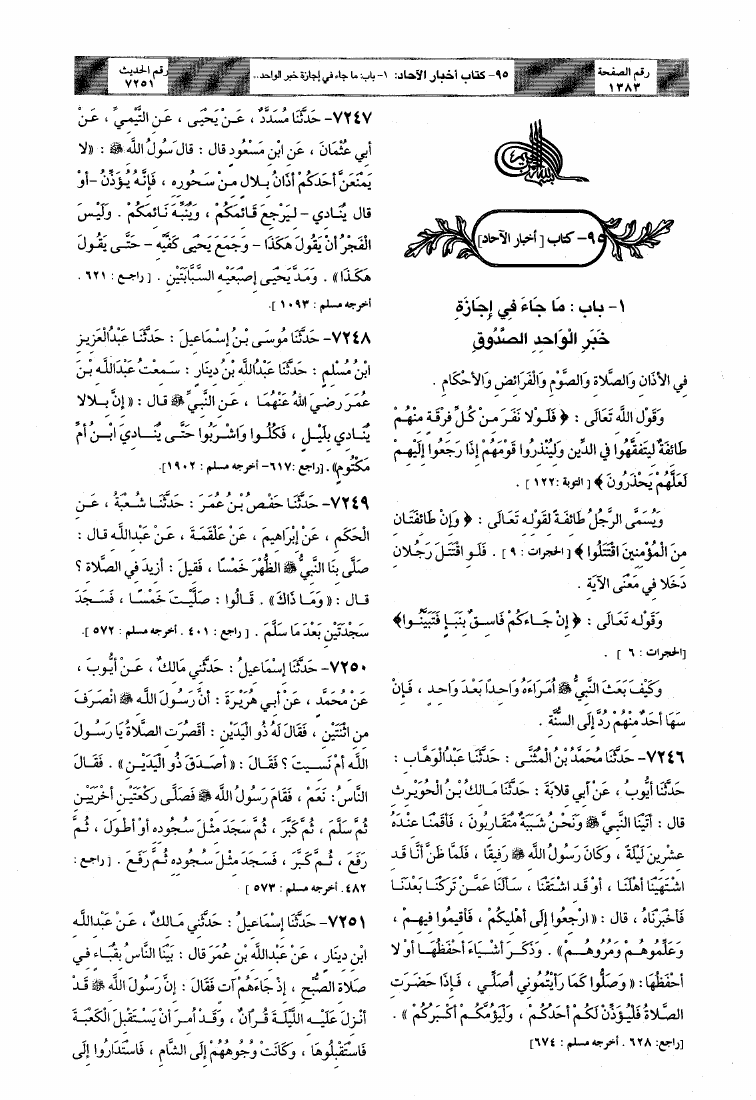 رقم الصفحة
١٣٨٣
٩٥- كتاب أخبار الآحاد: ١- باب: ما جاء في إجازة خبر الواحد..
رقم الحديث
٧٢٥١
٩٥- كتاب [أخبار الآحاد]
١- باب : مَا جَاءَ فِي إِجَازَةِ
خَبَرِ الْوَاحِدِ الصَّدُوقِ
في الأذَانِ وَالصَّلاةِ وَالصَّوْمِ وَالْفَرَائِضِ وَالأحْكَامِ .
وَقَوْلِ اللَّهِ تَعَالَى : ﴿ فَلَوْلا نَفَرَ مِنْ كُلِّ فِرْقَةٍ مِنْهُمْ
طَائِفَةٌ لِيَتَفَقَّهُوا فِي الدِّينِ وَلِيُنْذِرُوا قَوْمَهُمْ إِذَا رَجَعُوا إِلَيْهِمْ
لَعَلَّهُمْ يَحْذَرُونَ ﴾ [ التوبة :١٢٢ ] .
وَيُسَمَّى الرَّجُلُ طَائِفَةً لِقَوْلِهِ تَعَالَى : ﴿ وَإِنْ طَائِفَتَانِ
مِنَ الْمُؤْمِنِينَ اقْتَتَلُوا ﴾ [ الحجرات : ٩ ] . فَلَوِ اقْتَتَلَ رَجُلانِ
دَخَلا فِي مَعْنَى الآيَةِ .
وَقَوْلِهِ تَعَالَى : ﴿ إِنْ جَاءَكُمْ فَاسِقٌ بِنَبَإٍ فَتَبَيَّنُوا﴾
[الحجرات : ٦ ] .
وَكَيْفَ بَعَثَ النَّبِيُّ ﷺ أُمَرَاءَهُ وَاحِدًا بَعْدَ وَاحِدٍ ، فَإِنْ
سَهَا أَحَدٌ مِنْهُمْ رُدَّ إِلَى السُّنَّةِ .
٧٢٤٦- حَدَّثَنَا مُحَمَّدُ بْنُ الْمُثَنَّى : حَدَّثَنَا عَبْدُالْوَهَّابِ :
حَدَّثَنَا أَيُّوبُ ، عَنْ أَبِي قِلابَةَ : حَدَّثَنَا مَالِكُ بْنُ الْحُوَيْرِثِ
قال : أَتَيْنَا النَّبِيَّ ﷺ وَنَحْنُ شَبَبَةٌ مُتَقَارِبُونَ ، فَأَقَمْنَا عِنْدَهُ
عِشْرِينَ لَيْلَةً ، وَكَانَ رَسُولُ اللَّهِ ﷺ رَفِيقًا ، فَلَمَّا ظَنَّ أَنَّا قَدِ
اشْتَهَيْنَا أَهْلَنَا ، أَوْ قَدِ اشْتَقْنَا ، سَأَلَنَا عَمَّنْ تَرَكْنَا بَعْدَنَا
فَأَخْبَرْنَاهُ ، قال : «ارْجِعُوا إِلَى أَهْلِيكُمْ ، فَأَقِيمُوا فِيهِمْ ،
وَعَلِّمُوهُمْ وَمُرُوهُمْ» . وَذَكَرَ أَشْيَاءَ أَحْفَظُهَا أَوْ لا
أَحْفَظُهَا: «وَصَلُّوا كَمَا رَأَيْتُمُونِي أُصَلِّي ، فَإِذَا حَضَرَتِ
الصَّلاةُ فَلْيُؤَذِّنْ لَكُمْ أَحَدُكُمْ ، وَلْيَؤُمَّكُمْ أَكْبَرُكُمْ» .
[راجع: ٦٢٨ . أخرجه مسلم : ٦٧٤]
٧٢٤٧- حَدَّثَنَا مُسَدَّدٌ ، عَنْ يَحْيَى ، عَنِ التَّيْمِيِّ ، عَنْ
أَبِي عُثْمَانَ ، عَنِ ابْنِ مَسْعُودٍ قال : قال رَسُولُ اللَّهِ ﷺ : «لا
يَمْنَعَنَّ أَحَدَكُمْ أَذَانُ بِلالٍ مِنْ سَحُورِهِ ، فَإِنَّهُ يُؤَذِّنُ -أَوْ
قال يُنَادِي - لِيَرْجِعَ قَائِمَكُمْ ، وَيُنَبِّهَ نَائِمَكُمْ . وَلَيْسَ
الْفَجْرُ أَنْ يَقُولَ هَكَذَا - وَجَمَعَ يَحْيَى كَفَّيْهِ - حَتَّى يَقُولَ
هَكَذَا» . وَمَدَّ يَحْيَى إِصْبَعَيْهِ السَّبَّابَتَيْنِ . [راجع : ٦٢١ .
أخرجه مسلم : ١٠٩٣ ].
٧٢٤٨- حَدَّثَنَا مُوسَى بْنُ إِسْمَاعِيلَ : حَدَّثَنَا عَبْدُالْعَزِيزِ
ابْنُ مُسْلِمٍ : حَدَّثَنَا عَبْدُاللَّهِ بْنُ دِينَارٍ : سَمِعْتُ عَبْدَاللَّهِ بْنَ
عُمَرَ رَضِيَ اللَّهُ عَنْهُمَا ، عَنِ النَّبِيِّ ﷺ قال : «إِنَّ بِلالا
يُنَادِي بِلَيْلٍ ، فَكُلُوا وَاشْرَبُوا حَتَّى يُنَادِيَ ابْنُ أُمِّ
مَكْتُومٍ». [راجع :٦١٧- أخرجه مسلم : ١٩٠٢].
٧٢٤٩- حَدَّثَنَا حَفْصُ بْنُ عُمَرَ : حَدَّثَنَا شُعْبَةُ ، عَنِ
الْحَكَمِ ، عَنْ إِبْرَاهِيمَ ، عَنْ عَلْقَمَةَ ، عَنْ عَبْدِاللَّهِ قال :
صَلَّى بِنَا النَّبِيُّ ﷺ الظُّهْرَ خَمْسًا ، فَقِيلَ : أَزِيدَ فِي الصَّلاةِ ؟
قال : «وَمَا ذَاكَ» . قَالُوا : صَلَّيْتَ خَمْسًا ، فَسَجَدَ
سَجْدَتَيْنِ بَعْدَ مَا سَلَّمَ . [ راجع : ٤٠١ . أخرجه مسلم : ٥٧٢ ].
٧٢٥٠- حَدَّثَنَا إِسْمَاعِيلُ : حَدَّثَنِي مَالِكٌ ، عَنْ أَيُّوبَ ،
عَنْ مُحَمَّدٍ ، عَنْ أَبِي هُرَيْرَةَ : أَنَّ رَسُولَ اللَّهِ ﷺ انْصَرَفَ
مِنِ اثْنَتَيْنِ ، فَقَالَ لَهُ ذُو الْيَدَيْنِ : أَقَصُرَتِ الصَّلاةُ يَا رَسُولَ
اللَّهِ أَمْ نَسِيتَ ؟ فَقَالَ : «أَصَدَقَ ذُو الْيَدَيْنِ» . فَقَالَ
النَّاسُ: نَعَمْ ، فَقَامَ رَسُولُ اللَّهِ ﷺ فَصَلَّى رَكْعَتَيْنِ أُخْرَيَيْنِ
ثُمَّ سَلَّمَ ، ثُمَّ كَبَّرَ ، ثُمَّ سَجَدَ مِثْلَ سُجُودِهِ أَوْ أَطْوَلَ ، ثُمَّ
رَفَعَ ، ثُمَّ كَبَّرَ ، فَسَجَدَ مِثْلَ سُجُودِهِ ثُمَّ رَفَعَ . [ راجع :
٤٨٢ . أخرجه مسلم : ٥٧٣ ]
٧٢٥١- حَدَّثَنَا إِسْمَاعِيلُ : حَدَّثَنِي مَالِكٌ ، عَنْ عَبْدِاللَّهِ
ابْنِ دِينَارٍ ، عَنْ عَبْدِاللَّهِ بْنِ عُمَرَ قال : بَيْنَا النَّاسُ بِقُبَاءٍ فِي
صَلاةِ الصُّبْحِ ، إِذْ جَاءَهُمْ آتٍ فَقَالَ : إِنَّ رَسُولَ اللَّهِ ﷺ قَدْ
أُنْزِلَ عَلَيْهِ اللَّيْلَةَ قُرْآنٌ ، وَقَدْ أُمِرَ أَنْ يَسْتَقْبِلَ الْكَعْبَةَ
فَاسْتَقْبِلُوهَا ، وَكَانَتْ وُجُوهُهُمْ إِلَى الشَّامِ ، فَاسْتَدَارُوا إِلَى